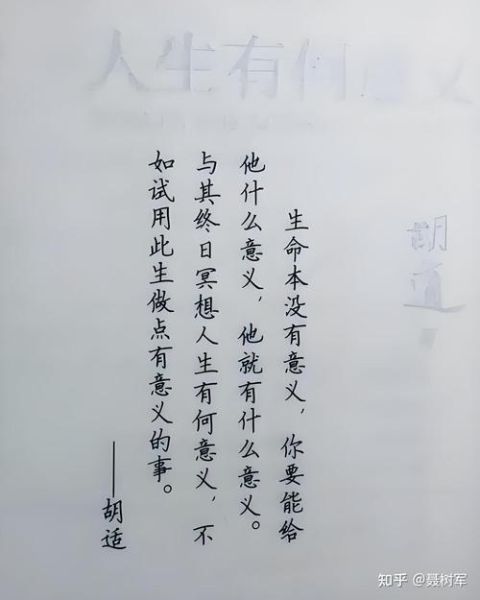 人生有何意义
胡适
生命本没有意义，你要能给
他什么意义，他就有什么意义。
与其终日冥想人生有何意义，不
如试用此生做点有意义的事。
——胡适
知乎 @聂树军